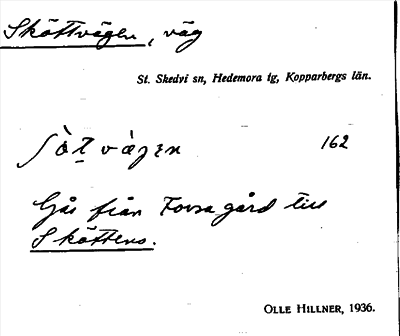 Sköttvägen, väg
St. Skedvi sn, Hedemora tg, Kopparbergs län.
ʃö̀t̲vägen 162
Går från Forsa gård till
Sköttens.
OLLE HILLNER, 1936.